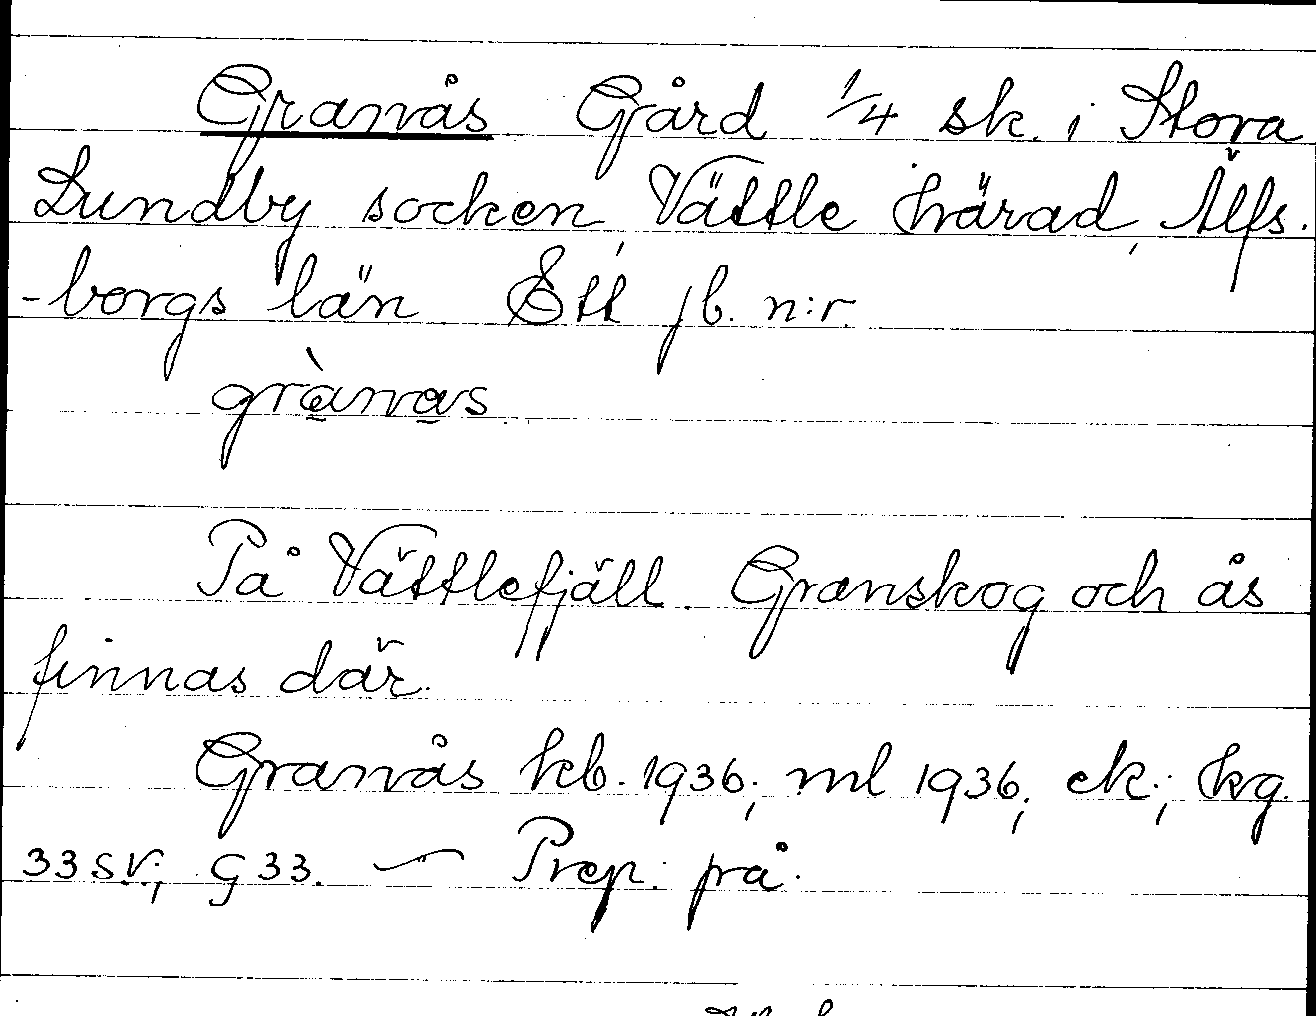 Granås Gård 1/4 sk. i Stora
Lundby socken, Vättle härad, Älfs-
-borgs län Ett jb. n:r.
grànas
På Vättlefjäll. Granskog och ås
finnas där.
Granås kb. 1936; ml 1936; ek; hkg.
33 SV; G 33. — Prep. på.